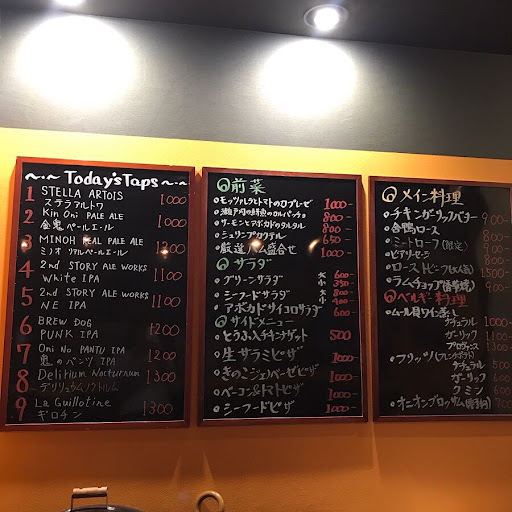 ~・~ Today's Taps ~・~
1 STELLA ARTOIS
ステラアルトワ 1000
2 Kin Oni PALE ALE
金鬼ペールエール 1000
3 MINOH REAL PALE ALE
ミノオ リアルペールエール 1300
4 2nd STORY ALE WORKS
White IPA 1100
5 2nd STORY ALE WORKS
NE IPA 1100
6 BREW DOG
PUNK IPA 1200
7 Oni No PANTU IPA
鬼のパンツ IPA 1200
8 Delirium Nocturnum
デリリュウムノクトルム 1300
9 La Guillotine
ギロチン 1300
前菜
モッツァレラとトマトのカプレーゼ 1000-
瀬戸内の鮮魚のカルパッチョ 800-
サーモンとアボカドのタルタル 800-
シュリンプカクテル 650-
厳選ハム盛合せ 1000-
サラダ
グリーンサラダ 大 600- 小 350-
シーフードサラダ 大 800 小 400
アボカドサイコロサラダ 600-
サイドメニュー
とうふ入チキンナゲット 500
生サラミピザ 1000-
きのこジェノベーゼピザ 1000-
ベーコン&トマトピザ 1000-
シーフードピザ 1000-
メイン料理
チキンガーリックバター 900-
合鴨ロース
ミートローフ(限定) 900-
ビアソーセージ
ローストビーフ 1500-
ラムチョップ
ベルギー料理
ムール貝ワイン蒸し
ナチュラル 1000
ガーリック 1100
プロヴァンス 1300
フリッツ
ナチュラル 500
ガーリック 600
クミン
オニオンブロッサム